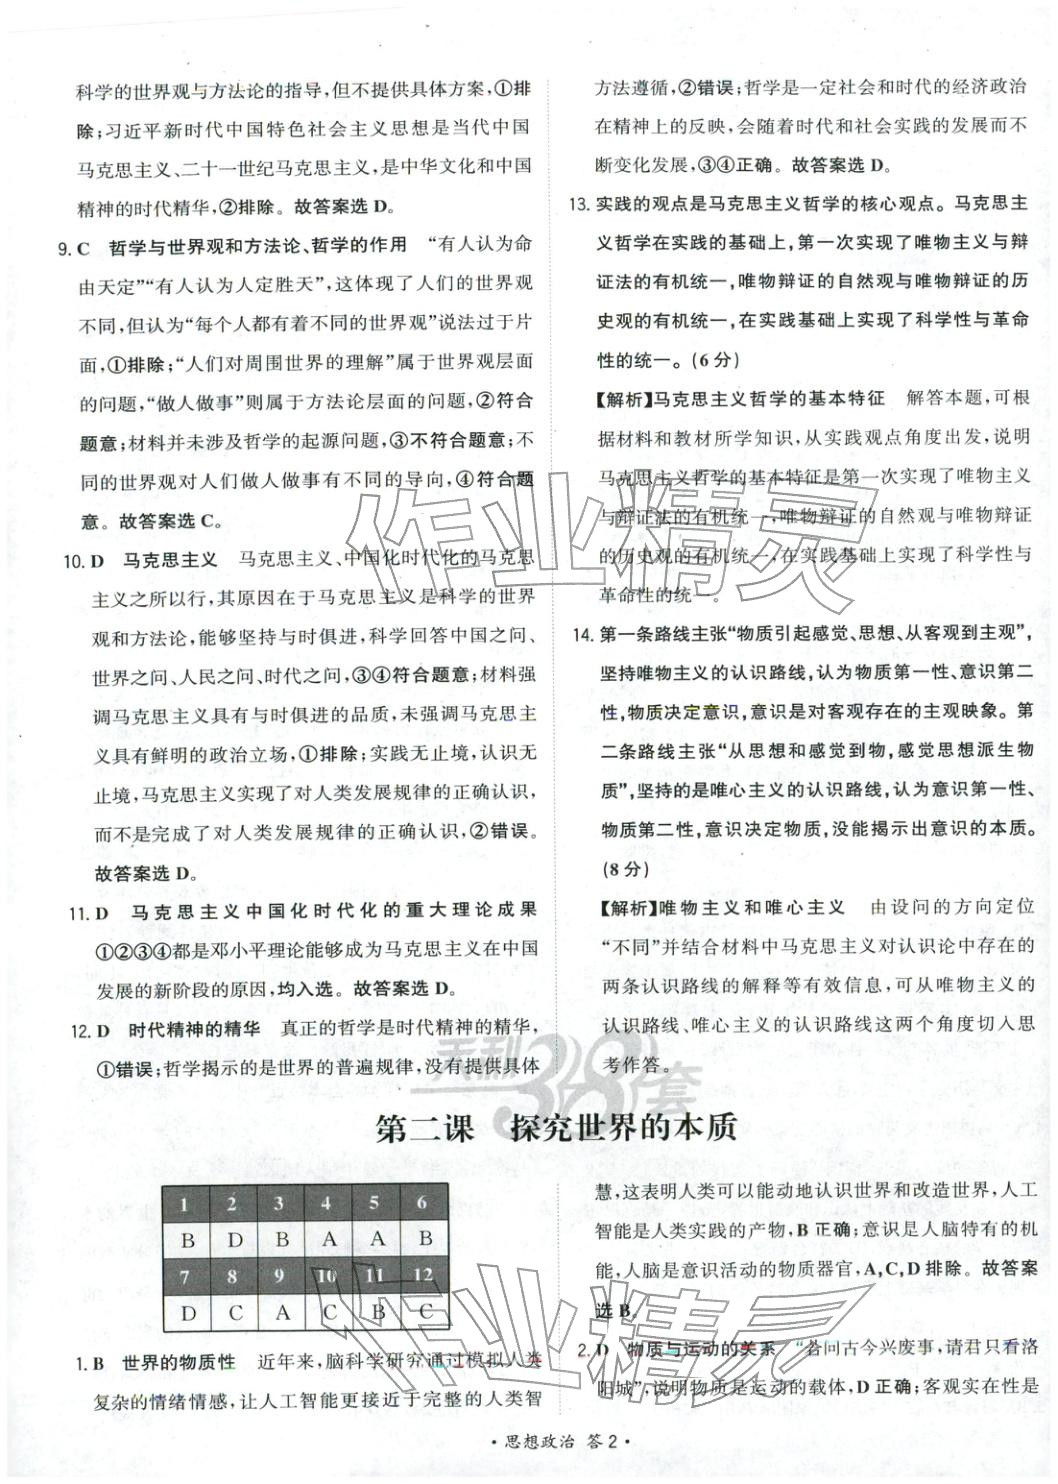 科学的世界观与方法论的指导,但不提供具体方案,①排
除;习近平新时代中国特色社会主义思想是当代中国
马克思主义、二十一世纪马克思主义,是中华文化和中国
精神的时代精华,②排除。故答案选 D。
9. C 哲学与世界观和方法论、哲学的作用 “有人认为命
由天定”“有人认为人定胜天”,这体现了人们的世界观
不同,但认为“每个人都有着不同的世界观”说法过于片
面,①排除;“人们对周围世界的理解”属于世界观层面
的问题,“做人做事”则属于方法论层面的问题,②符合
题意;材料并未涉及哲学的起源问题,③不符合题意;不
同的世界观对人们做人做事有不同的导向,④符合题
意。故答案选 C。
10. D 马克思主义 马克思主义、中国化时代化的马克思
主义之所以行,其原因在于马克思主义是科学的世界
观和方法论,能够坚持与时俱进,科学回答中国之问、
世界之问、人民之问、时代之问,③④符合题意;材料强
调马克思主义具有与时俱进的品质,未强调马克思主
义具有鲜明的政治立场,①排除;实践无止境,认识无
止境,马克思主义实现了对人类发展规律的正确认识,
而不是完成了对人类发展规律的正确认识,②错误。
故答案选 D。
11. D 马克思主义中国化时代化的重大理论成果
①②③④都是邓小平理论能够成为马克思主义在中国
发展的新阶段的原因,均入选。故答案选 D。
12. D 时代精神的精华 真正的哲学是时代精神的精华,
①错误;哲学揭示的是世界的普遍规律,没有提供具体
方法遵循,②错误;哲学是一定社会和时代的经济政治
在精神上的反映,会随着时代和社会实践的发展而不
断变化发展,③④正确。故答案选 D。
13. 实践的观点是马克思主义哲学的核心观点。马克思主
义哲学在实践的基础上,第一次实现了唯物主义与辩
证法的有机统一,唯物辩证的自然观与唯物辩证的历
史观的有机统一,在实践基础上实现了科学性与革命
性的统一。(6 分)
【解析】马克思主义哲学的基本特征 解答本题,可根
据材料和教材所学知识,从实践观点角度出发,说明
马克思主义哲学的基本特征是第一次实现了唯物主义
与辩证法的有机统一,唯物辩证的自然观与唯物辩证
的历史观的有机统一,在实践基础上实现了科学性与
革命性的统一。
14. 第一条路线主张“物质引起感觉、思想、从客观到主观”,
坚持唯物主义的认识路线,认为物质第一性、意识第二
性,物质决定意识,意识是对客观存在的主观映象。第
二条路线主张“从思想和感觉到物,感觉思想派生物
质”,坚持的是唯心主义的认识路线,认为意识第一性、
物质第二性,意识决定物质,没能揭示出意识的本质。
(8 分)
【解析】唯物主义和唯心主义 由设问的方向定位
“不同”并结合材料中马克思主义对认识论中存在的
两条认识路线的解释等有效信息,可从唯物主义的
认识路线、唯心主义的认识路线这两个角度切入思
考作答。
天利38套
第二课 探究世界的本质
1 2 3 4 5 6
B D B A A B
7 8 9 10 11 12
D C A C B C
1. B 世界的物质性 近年来,脑科学研究通过模拟人类
复杂的情绪情感,让人工智能更接近于完整的人类智
慧,这表明人类可以能动地认识世界和改造世界,人工
智能是人类实践的产物,B 正确;意识是人脑特有的机
能,人脑是意识活动的物质器官,A,C,D 排除。故答案
选 B。
2. D 物质与运动的关系 “若问古今兴废事,请君只看洛
阳城”,说明物质是运动的载体,D 正确;客观实在性是
· 思想政治 答 2 ·
作业精灵
作业精灵